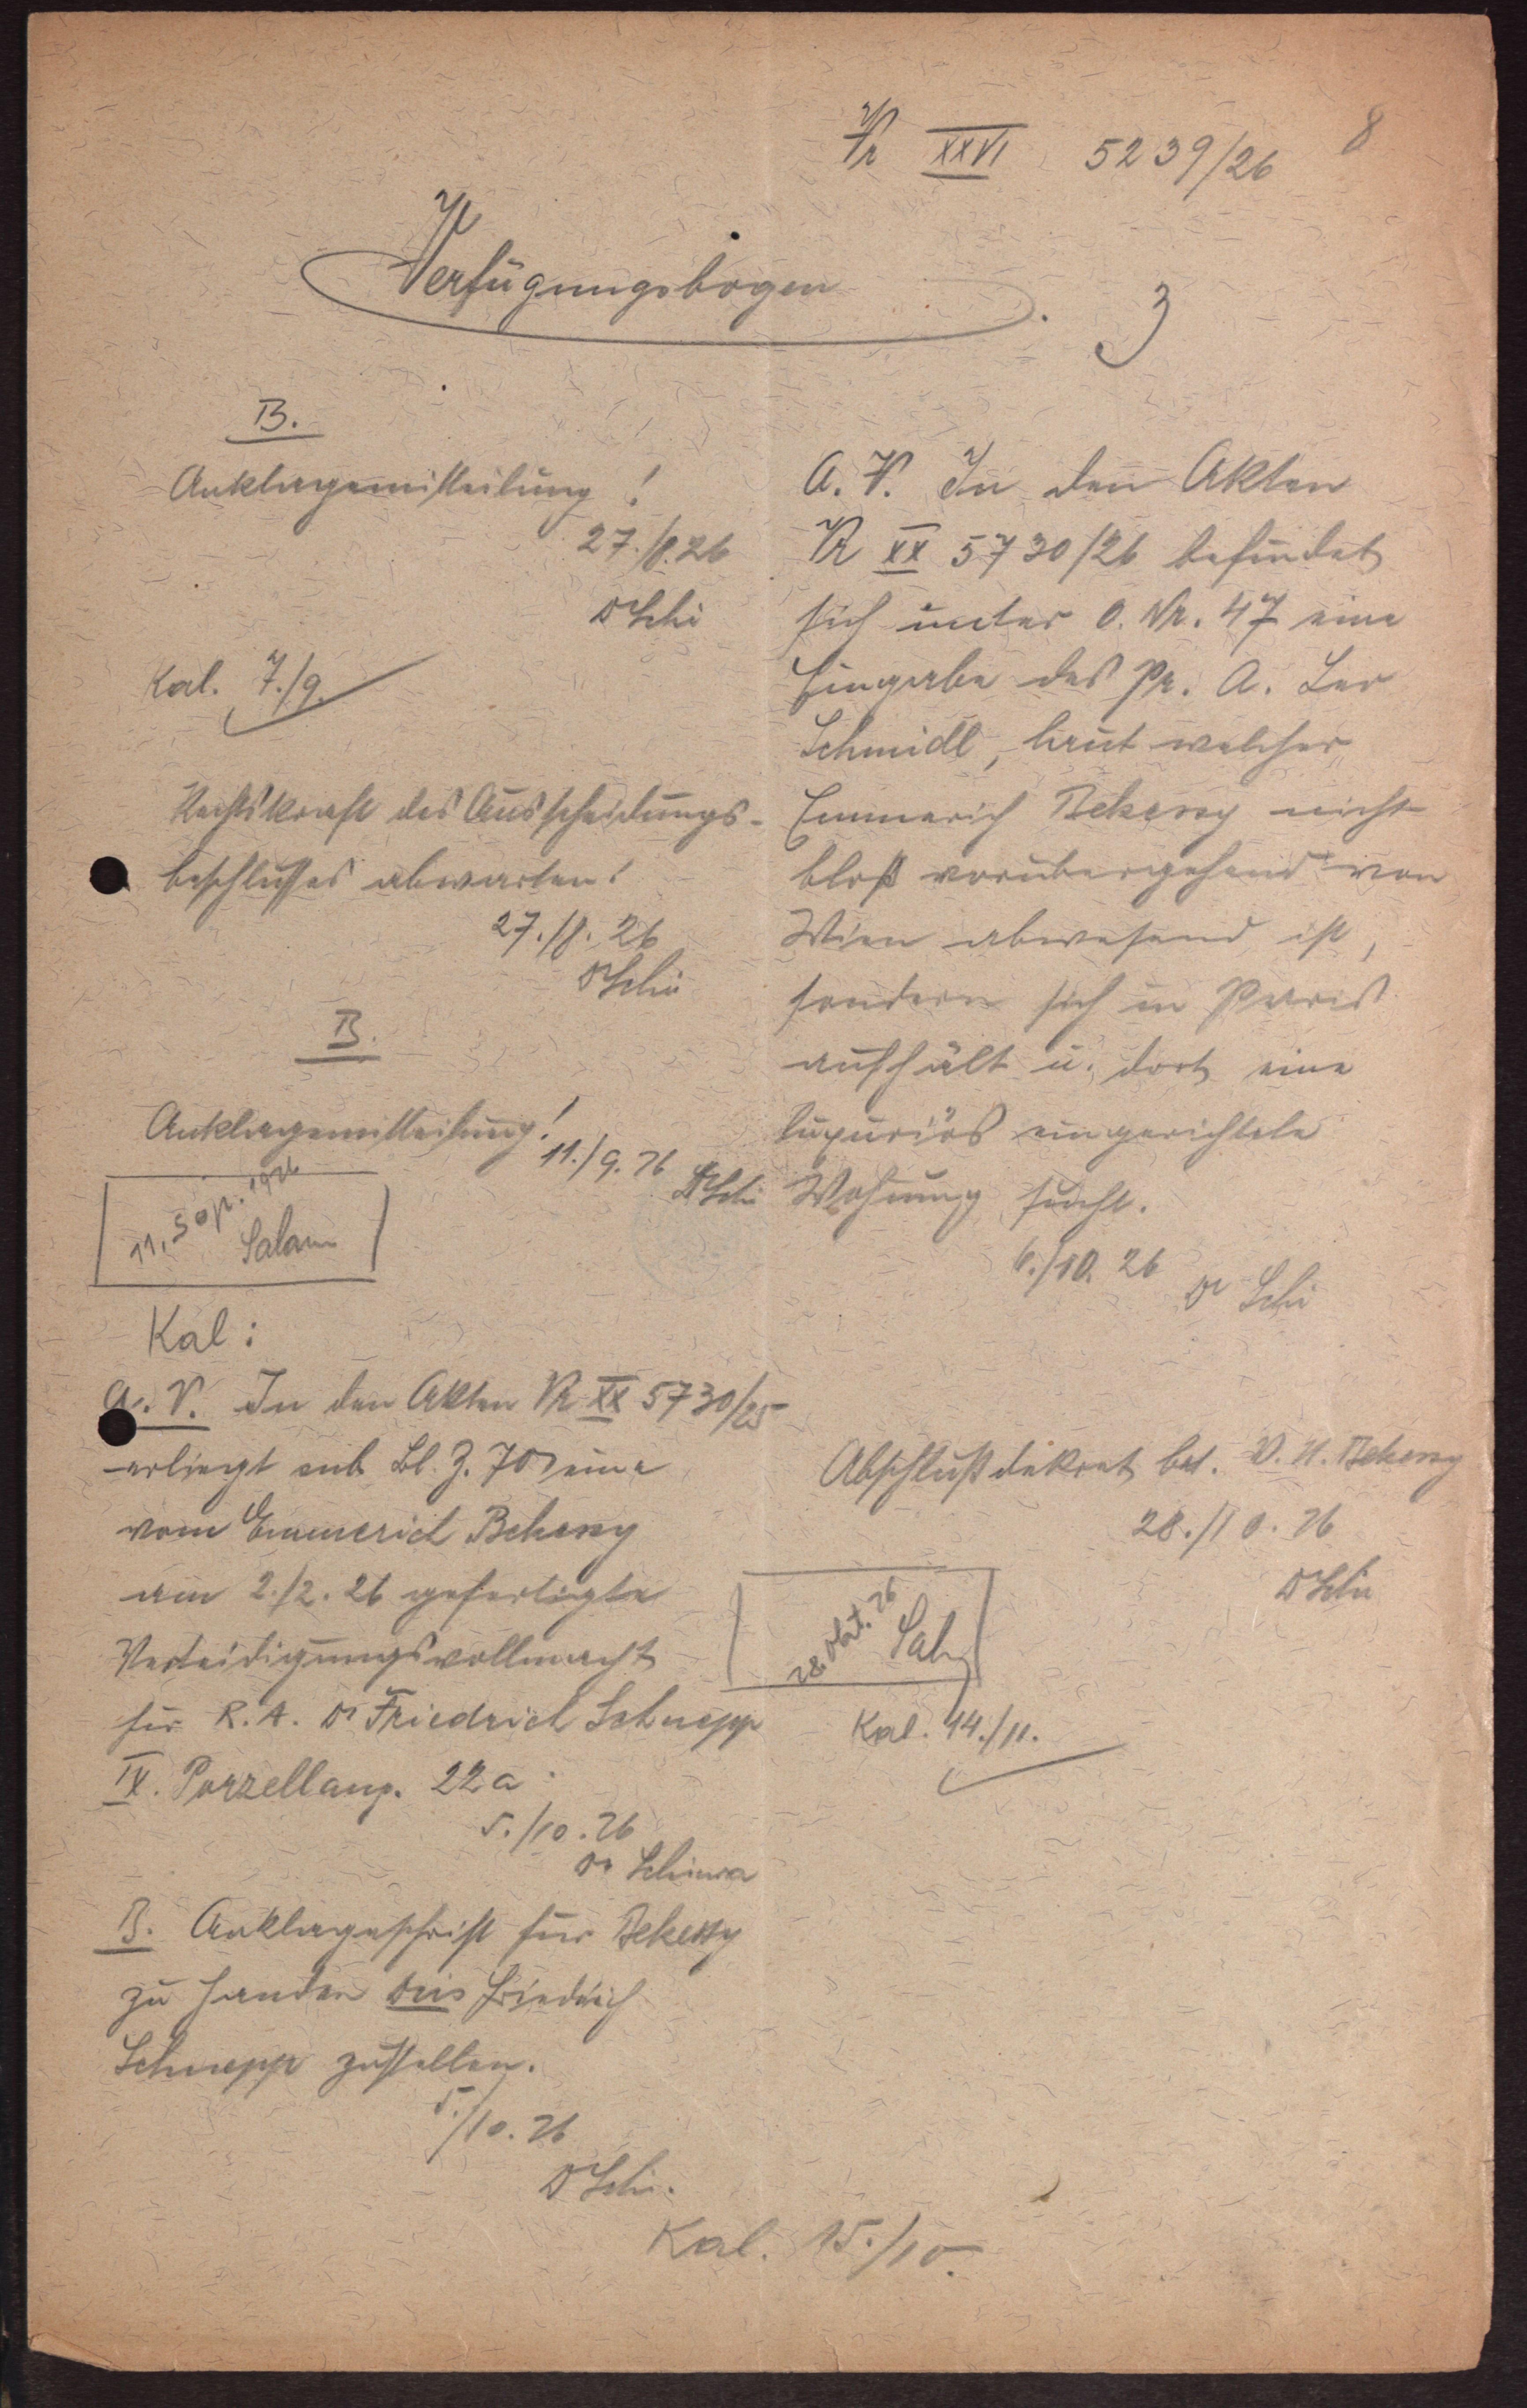 Vr XXVI 5239/26
8
Verfügungsbogen.
3
B.
Anklagemitteilung!
27./8.26
Dr Schi
Kal. 7./9.
Rechtskraft des Ausscheidungs-
beschlusses abwarten!
27./8. 26
Dr Schi
B.
Anklagemitteilung!
11./9. 26
Dr Schi
11. Sep. 1926
Kal:
A. V. In den Akten Vr XX 5730/25
erliegt sub Bl. Z. 70 eine
vom Emmerich Bekessy
am 2./2. 26 gefertigte
Verteidigungsvollmacht
für R. A. Dr Friedrich Schnepp
IX. Porzellang. 22a
5./10. 26
Dr Schima
B. Anklageschrift für Bekessy
zu Handen Dris Friedrich
Schnepp zustellen.
5./10. 26
Dr Schi.
Kal. 15./10.
A. V. In den Akten
Vr XX 5730/26 befindet
sich unter O. Nr. 47 eine
Eingabe des Pr. A. Leo
Schmidl, laut welcher
Emmerich Bekessy nicht
bloß vorübergehend von
Wien abwesend ist,
sondern sich in Paris
aufhält u. dort eine
luxuriös eingerichtete
Wohnung sucht.
6./10. 26
Dr Schi
Abschlußdekret bet. Bekessy
28./10. 26
Dr Schi
28. Okt. 26
Kal. 14./11.